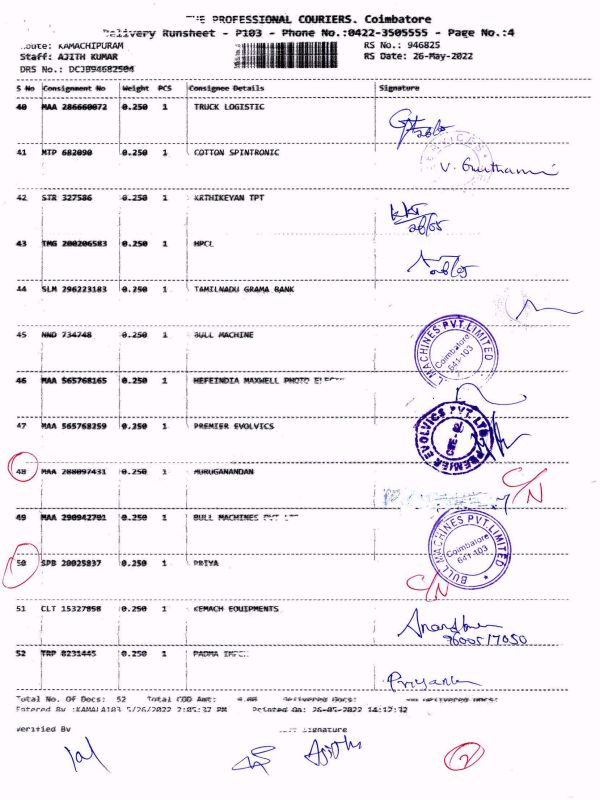 THE PROFESSIONAL COURIERS. Coimbatore
Delivery Runsheet - P103 - Phone No.:0422-3505555 - Page No.:4
Route: KAMACHIPURAM RS No.: 946825
Staff: AJITH KUMAR RS Date: 26-May-2022
DRS No.: DCJB94682504
S No Consignment No Weight PCS Consignee Details Signature
40 MAA 286660072 0.250 1 TRUCK LOGISTIC
26/05
41 MTP 682090 0.250 1 COTTON SPINTRONIC
V. Gowthami
42 STR 327586 0.250 1 KRTHIKEYAN TPT
26/05
43 TMG 200206583 0.250 1 HPCL
26/05
44 SLM 296223183 0.250 1 TAMILNADU GRAMA BANK
45 NND 734748 0.250 1 BULL MACHINE
BULL MACHINES PVT. LIMITED Coimbatore 641-103
46 MAA 565768165 0.250 1 HEFEINDIA MAXWELL PHOTO ELECTR
47 MAA 565768259 0.250 1 PREMIER EVOLVICS
PREMIER EVOLVICS PVT. LTD.
48 MAA 288097431 0.250 1 MURUGANANDAN
C/N
49 MAA 290942701 0.250 1 BULL MACHINES PVT LTD
BULL MACHINES PVT. LIMITED Coimbatore 641-103
50 SPB 20025837 0.250 1 PRIYA
C/N
51 CLT 15327858 0.250 1 KEMACH EQUIPMENTS
9600517050
52 TRP 8231445 0.250 1 PADMA IMPEX
Priyanka
Total No. Of Docs: 52 Total COD Amt: 0.00 Delivered Docs: Un Delivered Docs:
Entered By :KAMALA103 5/26/2022 2:05:37 PM Printed On: 26-05-2022 14:12:32
Verified By Signature
2